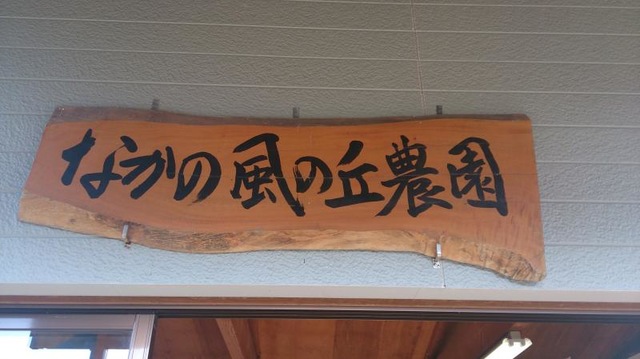 なかの風の丘農園